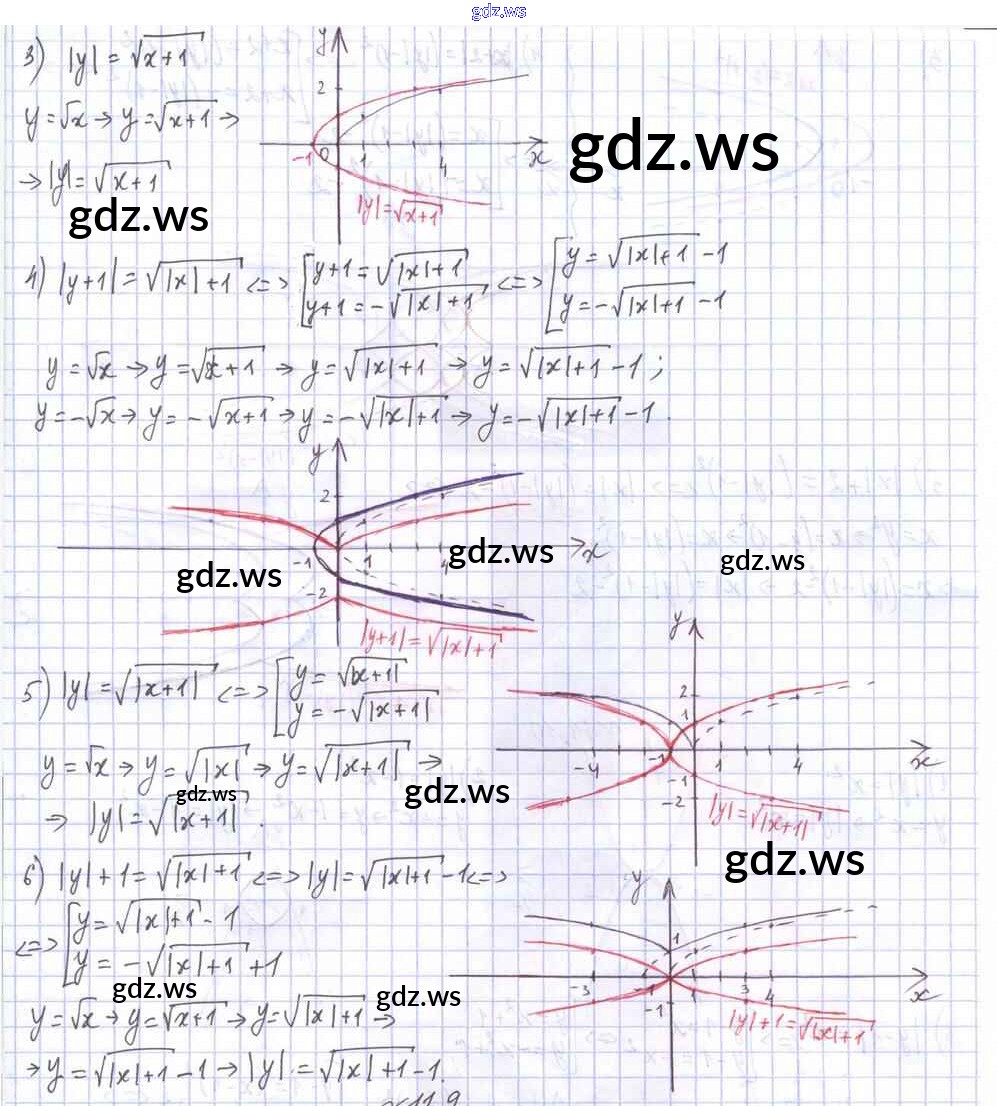 gdz.ws
3) |y| = √(x+1)
y = √x → y = √(x+1) →
→ |y| = √(x+1)
y
2
-1 0 1 4 x
|y| = √(x+1)
gdz.ws
gdz.ws
4) |y+1| = √(|x|+1) <=> [y+1 = √(|x|+1) <=> [y = √(|x|+1) - 1
y+1 = -√(|x|+1) y = -√(|x|+1) - 1
y = √x → y = √(x+1) → y = √(|x|+1) → y = √(|x|+1) - 1;
y = -√x → y = -√(x+1) → y = -√(|x|+1) → y = -√(|x|+1) - 1.
y
2
-1 1 4 x
-2
|y+1| = √(|x|+1)
gdz.ws
gdz.ws
gdz.ws
5) |y| = √|x+1| <=> [y = √|x+1|
y = -√|x+1|
y = √x → y = √|x| → y = √|x+1| →
→ |y| = √|x+1|.
gdz.ws
gdz.ws
y
2
1
-4 -1 1 4 x
-1
-2
|y| = √|x+1|
gdz.ws
6) |y| + 1 = √(|x|+1) <=> |y| = √(|x|+1) - 1 <=>
<=> [y = √(|x|+1) - 1
y = -√(|x|+1) + 1
gdz.ws
gdz.ws
y = √x → y = √(x+1) → y = √(|x|+1) →
→ y = √(|x|+1) - 1 → |y| = √(|x|+1) - 1.
y
1
-3 -1 1 3 4 x
-1
|y| + 1 = √(|x|+1)
11.9